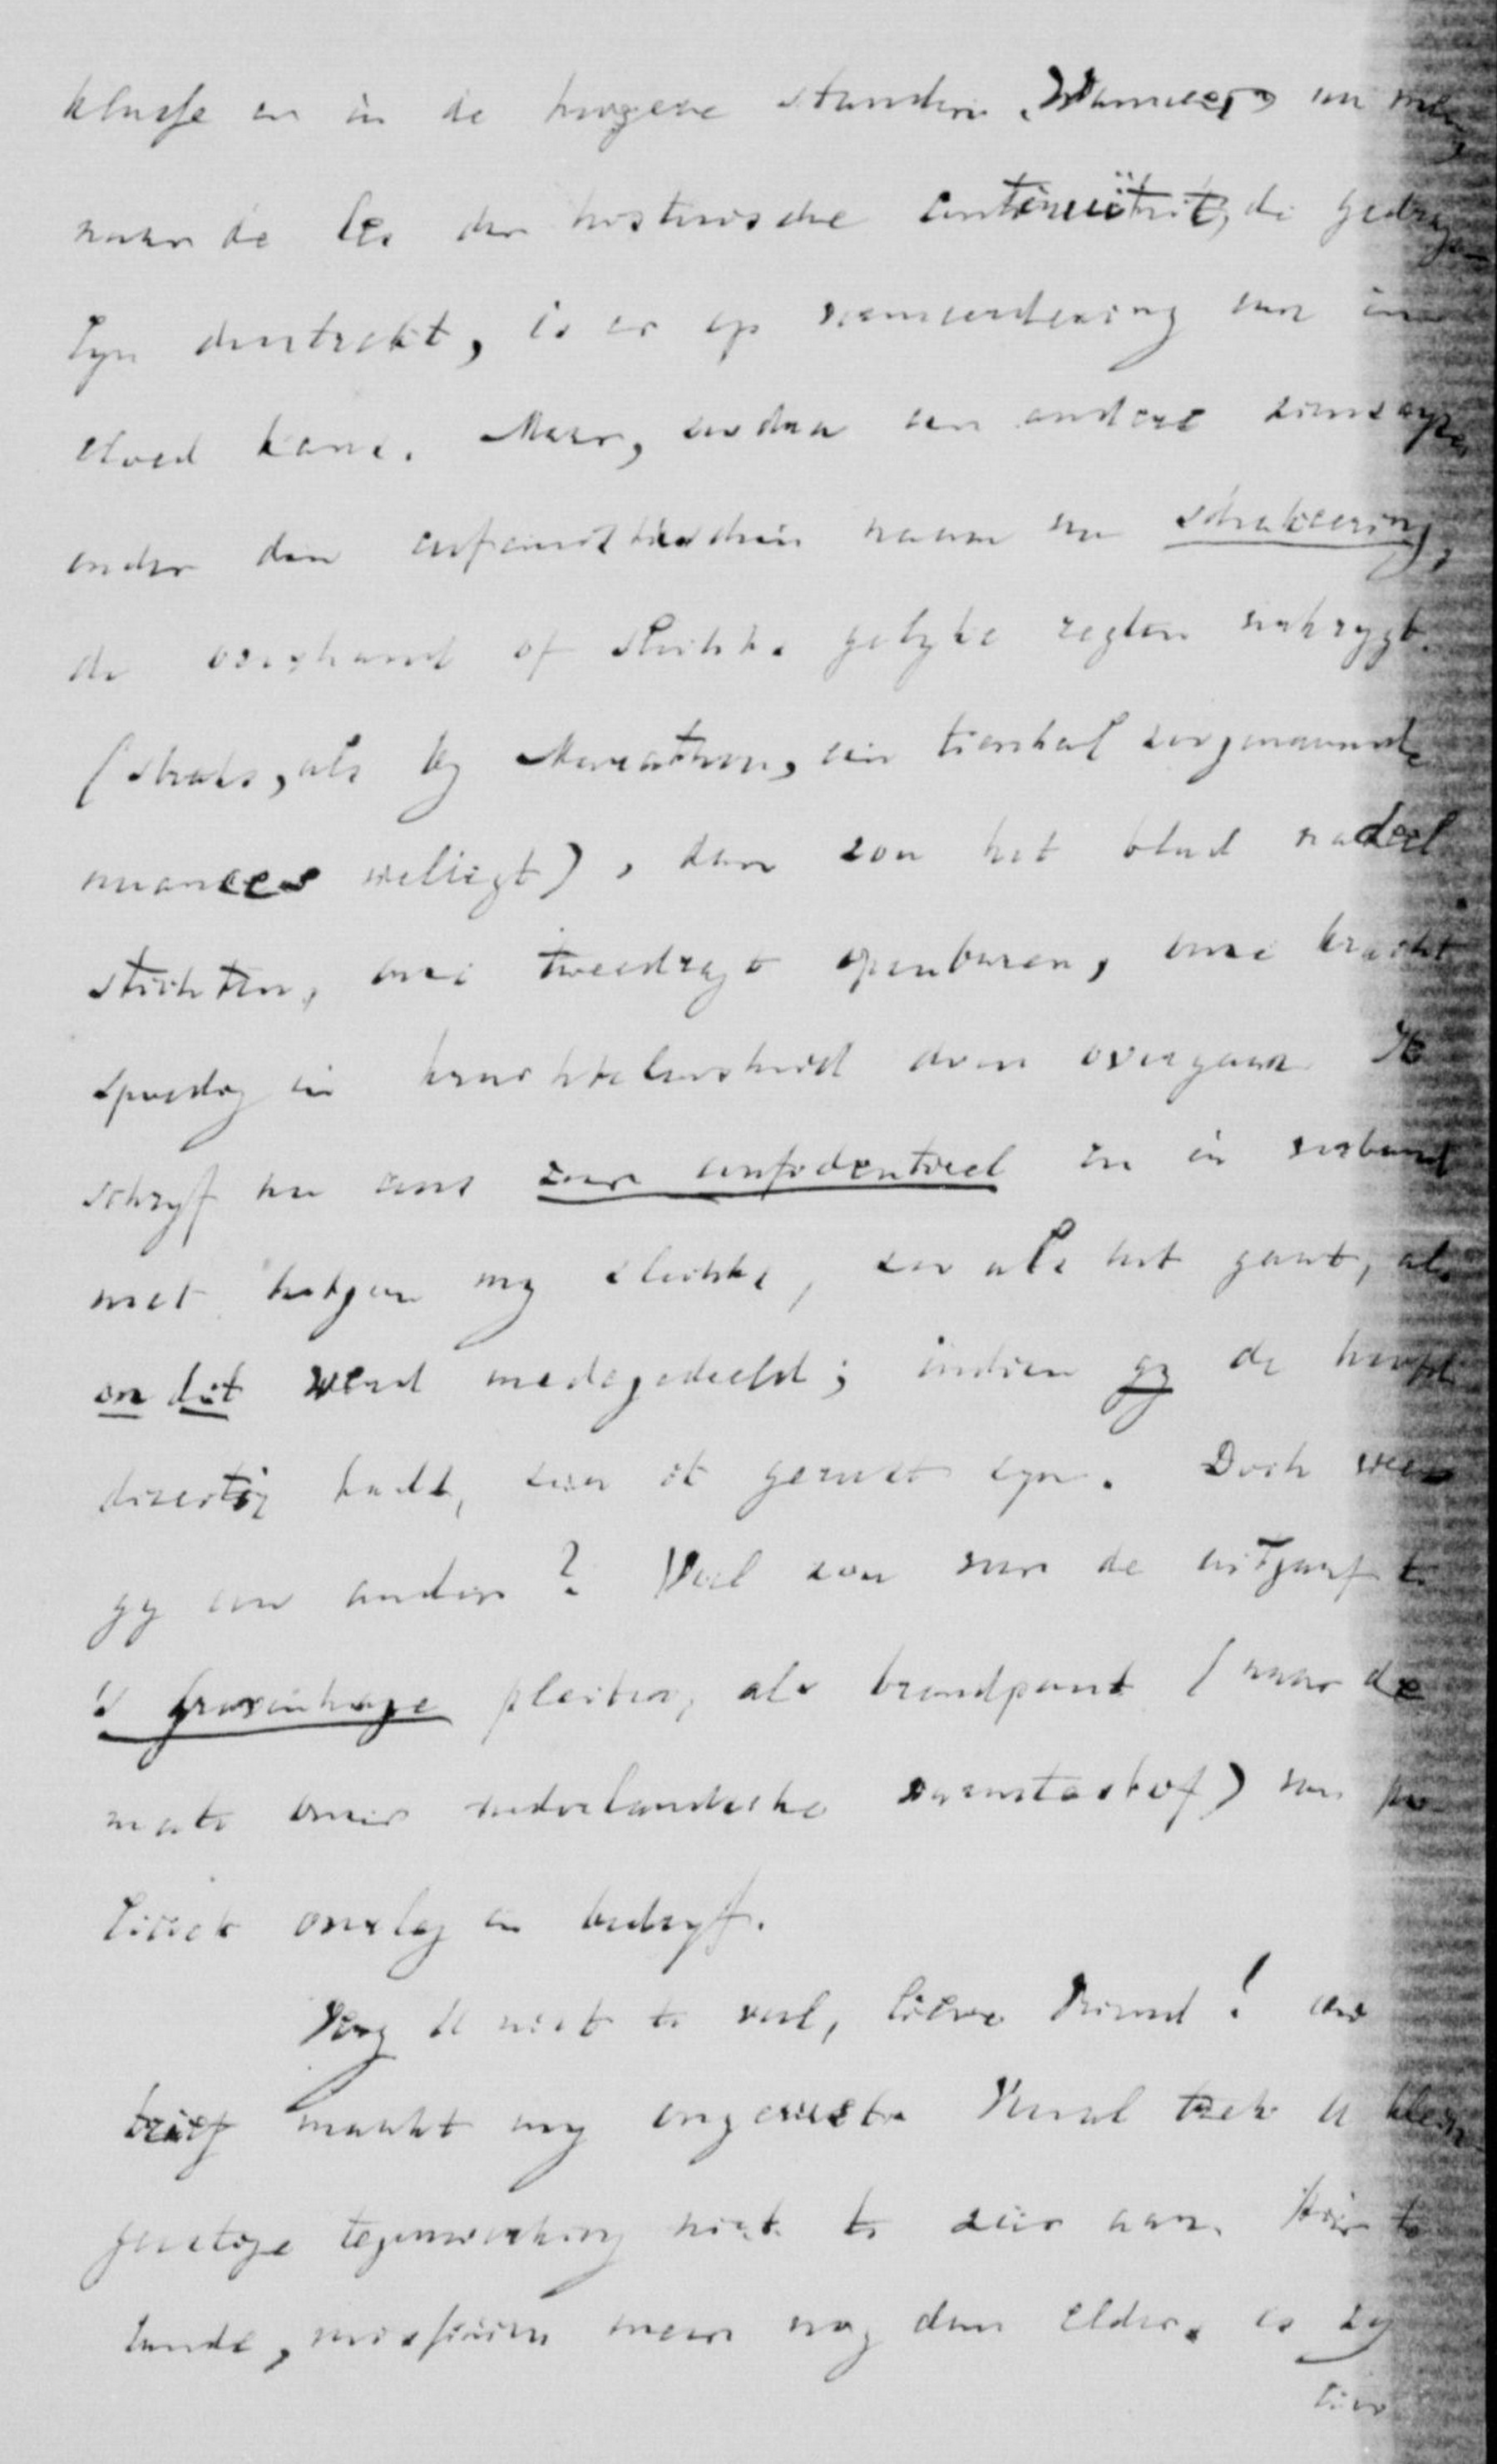 klasse en in de hoogere standen. Wanneer nu men,
naar de les der historische continuïteit, de gedragen
lyn doortrekt, is er op vermeerdering van in-
vloed kans. Maar, zoodra een andere zienswyze,
onder den naam van schakeering,
de overhand of slechts gelyke regten verkrygt.
(straks, als by Marathon, een tiental zoogenaamde
nuances welligt), dan zou het blad nadeel
stichten, onze tweedragt openbaren, onze kracht
spoedig in krachteloosheid doen overgaan. Ik
schryf nu eens zeer confidentieel en in verband
met hetgeen my slechts, zoo als het gaat, als
on dit werd medegedeeld; indien gy de hoofd-
directie hadt, zou ik gerust zyn. Doch wees
gy een ander? Veel zou voor de uitgaaf te
's Gravenhage pleiten, als brandpunt (naar de
mate onzer nederlandsche warmtestof) van po-
litiek overleg en bedryf.
Verg U niet te veel, lieve Vriend! uw
brief maakt my ongerust. Vooral trek U klein-
geestige tegenwerking niet te zeer aan. Hier te
lande, misschien meer nog dan elders, is zy